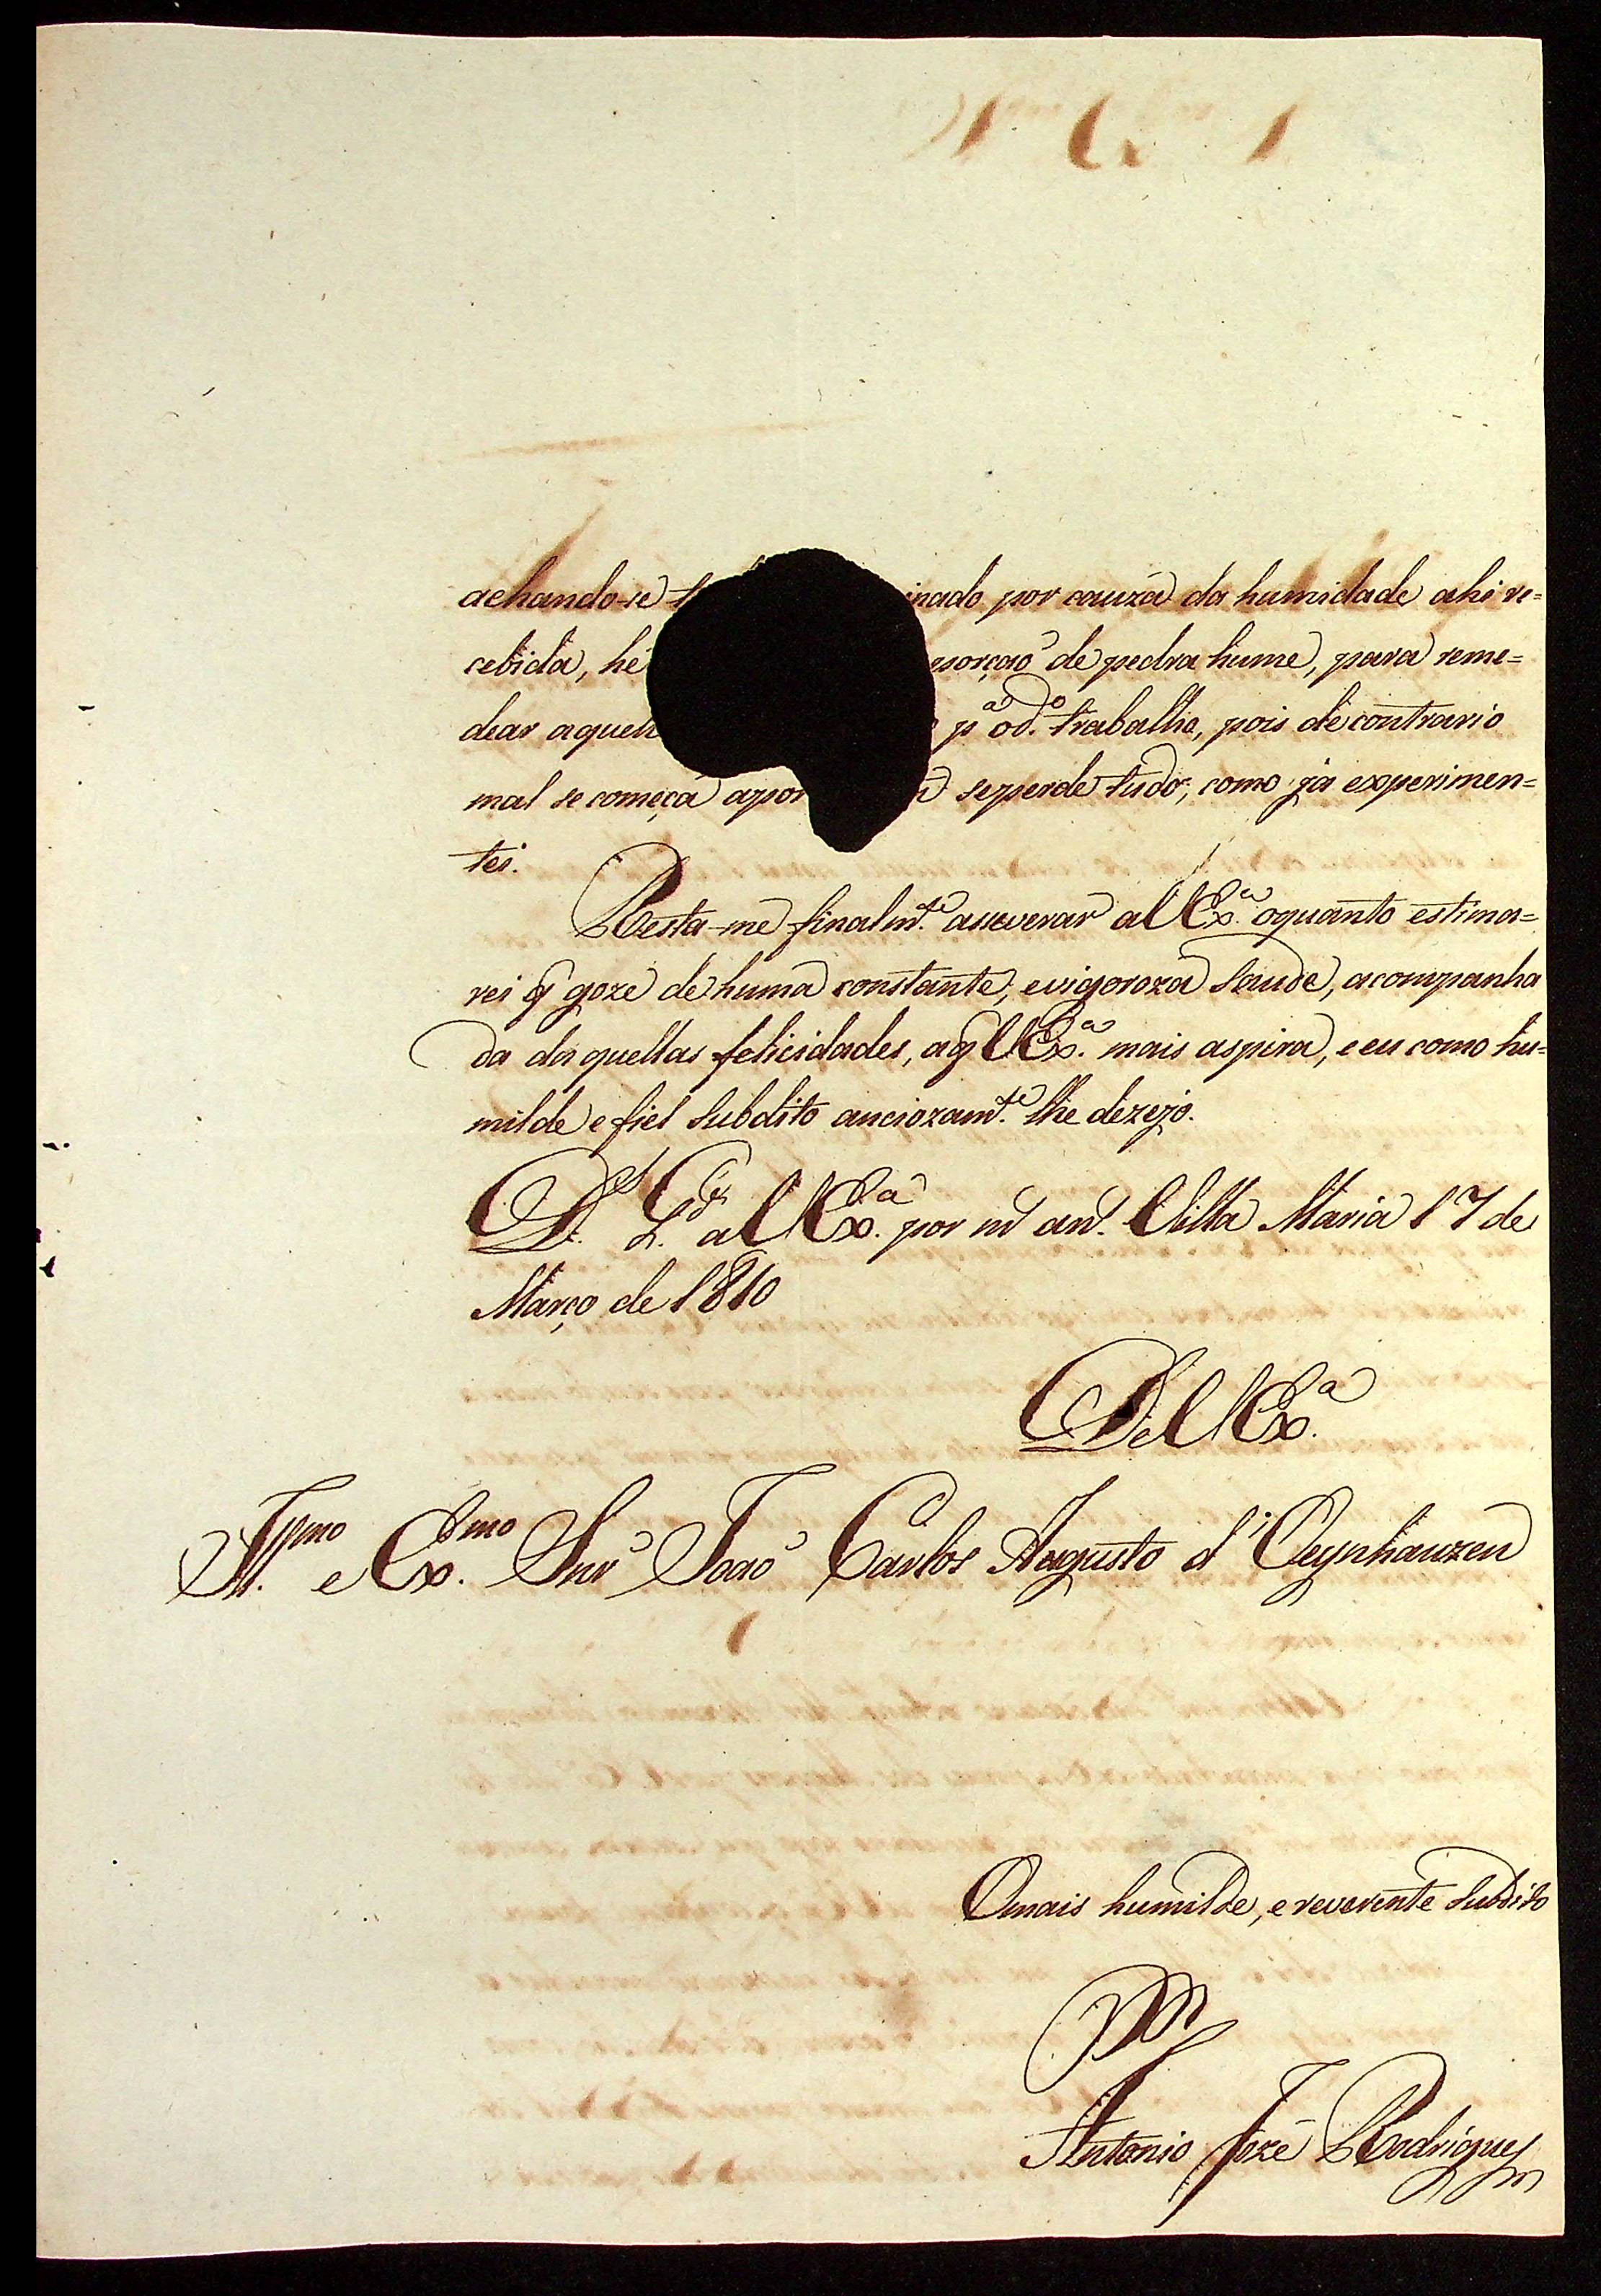 achando-se t inado por cauza da humidade ahi re=
cebida, hé porçaõ de pedra hume, para reme=
dear aquell pª o d.º trabalho, pois de contrario
mal se começa apor se perde tudo, como ja experimen=
tei.
Resta-me finalm.te asseverar a V Ex.ª oquanto estima=
rei q̃ goze de huma constante, evigoroza Saude, acompanha
da daquellas felicidades, aq̃ V Ex.ª mais aspira, e eu como hu=
milde e fiel Subdito anciozam.te lhe dezejo.
D.s G.de a V Ex.ª por m.s an.s Villa Maria 17 de
Março de 1810
De V Ex.ª
Ill.mo e Ex.mo Snr̃ Joaõ Carlos Augusto d'Oeynhauzen
Omais humilde, e reverente Subdito
Antonio Joze Rodrigues